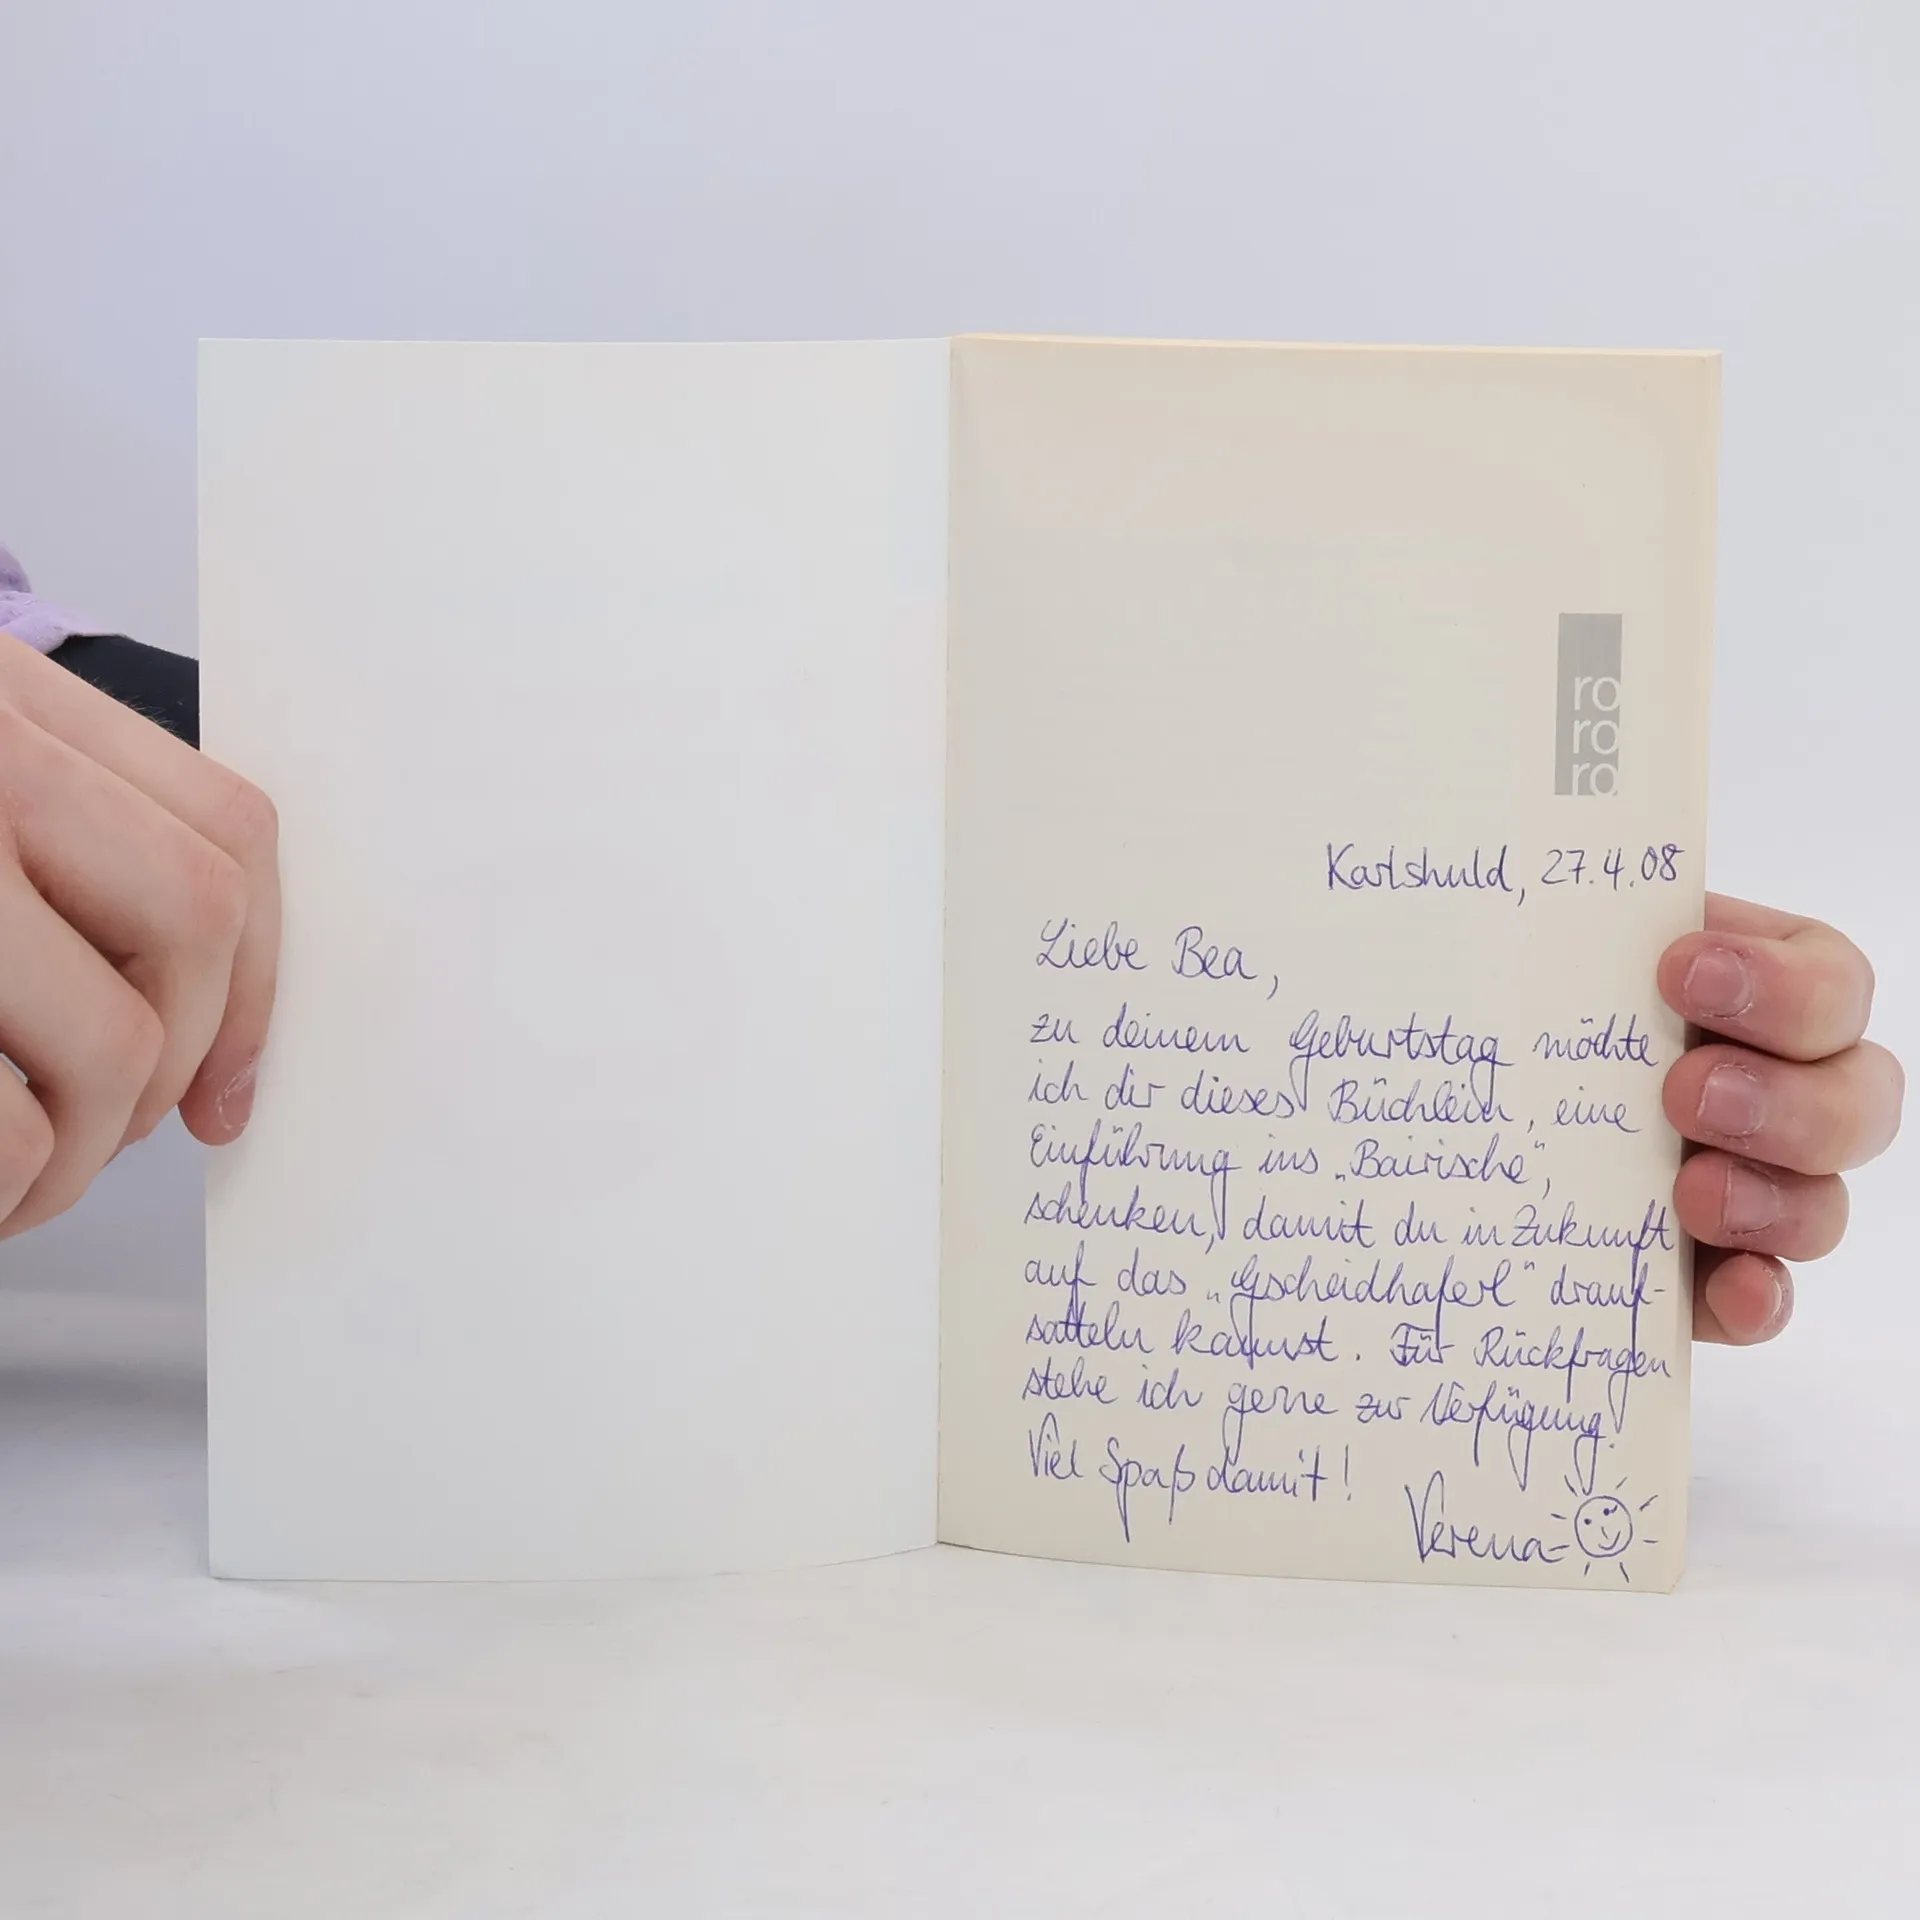 ro
ro
ro
Karlshuld, 27.4.08
Liebe Bea,
zu deinem Geburtstag möchte
ich dir dieses Büchlein, eine
Einführung ins „Bairische“,
schenken, damit du in Zukunft
auf das „Gscheidhaferl“ drauf-
satteln kannst. Für Rückfragen
stehe ich gerne zur Verfügung.
Viel Spaß damit!
Verena